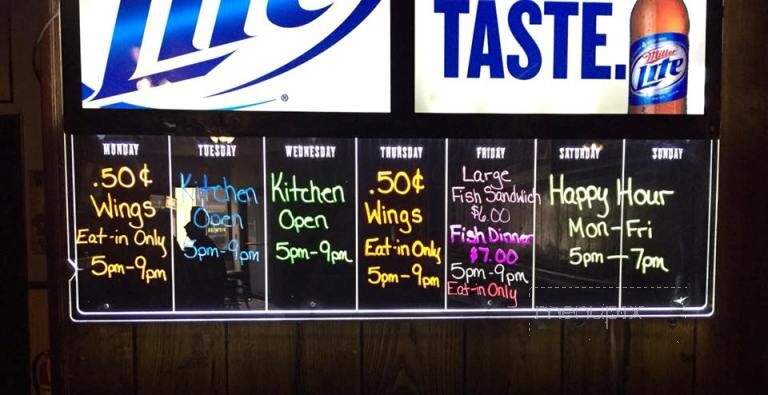 Lite
®
TASTE.
Miller
Lite
MONDAY
.50¢
Wings
Eat-in Only
5pm-9pm
TUESDAY
Kitchen
Open
5pm-9pm
WEDNESDAY
Kitchen
Open
5pm-9pm
THURSDAY
.50¢
Wings
Eat-in Only
5pm-9pm
FRIDAY
Large
Fish Sandwich
$6.00
Fish Dinner
$7.00
5pm-9pm
Eat-in Only
SATURDAY SUNDAY
Happy Hour
Mon-Fri
5pm-7pm
menupix